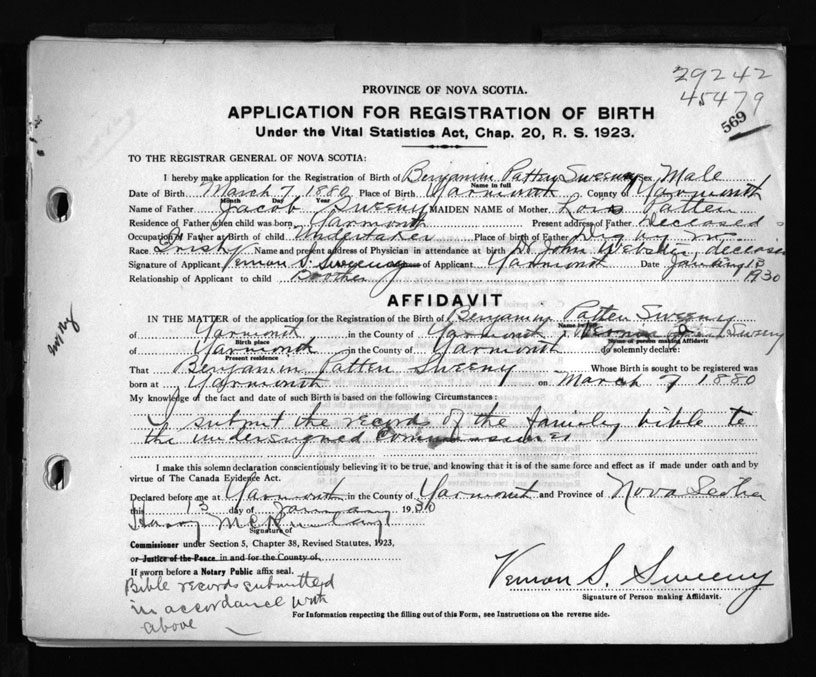 29242
45479
569
PROVINCE OF NOVA SCOTIA.
APPLICATION FOR REGISTRATION OF BIRTH
Under the Vital Statistics Act, Chap. 20, R. S. 1923.
TO THE REGISTRAR GENERAL OF NOVA SCOTIA:
I hereby make application for the Registration of Birth of Benjamin Patten Sweeny Sex Male
Name in full
Date of Birth March 7 1880 Place of Birth Yarmouth County of Yarmouth
Month Day Year
Name of Father Jacob Sweeny MAIDEN NAME of Mother Lois Patten
Residence of Father when child was born, Yarmouth Present address of Father Deceased
Occupation of Father at Birth of child Undertaker Place of birth of Father Digby
Race Irish Name and present address of Physician in attendance at birth Dr John Webster, deceased
Signature of Applicant Vernon S. Sweeny of Applicant Yarmouth Date January 13 1930
Relationship of Applicant to child Brother
AFFIDAVIT
IN THE MATTER of the application for the Registration of the Birth of Benjamin Patten Sweeny
of Yarmouth in the County of Yarmouth Sweeny
Birth place Name of person making Affidavit
of Yarmouth in the County of Yarmouth do solemnly declare:
Present residence
That Benjamin Patten Sweeny Whose Birth is sought to be registered was
born at Yarmouth on March 7 1880
My knowledge of the fact and date of such Birth is based on the following Circumstances:
I submit the records of the family bible to
the undersigned Commissioner
I make this solemn declaration conscientiously believing it to be true, and knowing that it is of the same force and effect as if made under oath and by
virtue of The Canada Evidence Act.
Declared before me at Yarmouth in the County of Yarmouth and Province of Nova Scotia
this 13 day of January 1930
Harry
Signature of
Commissioner under Section 5, Chapter 38, Revised Statutes, 1923,
or Justice of the Peace in and for the County of
If sworn before a Notary Public affix seal.
Bible records submitted
in accordance with
above
Vernon S. Sweeny
Signature of Person making Affidavit.
For Information respecting the filling out of this Form, see Instructions on the reverse side.